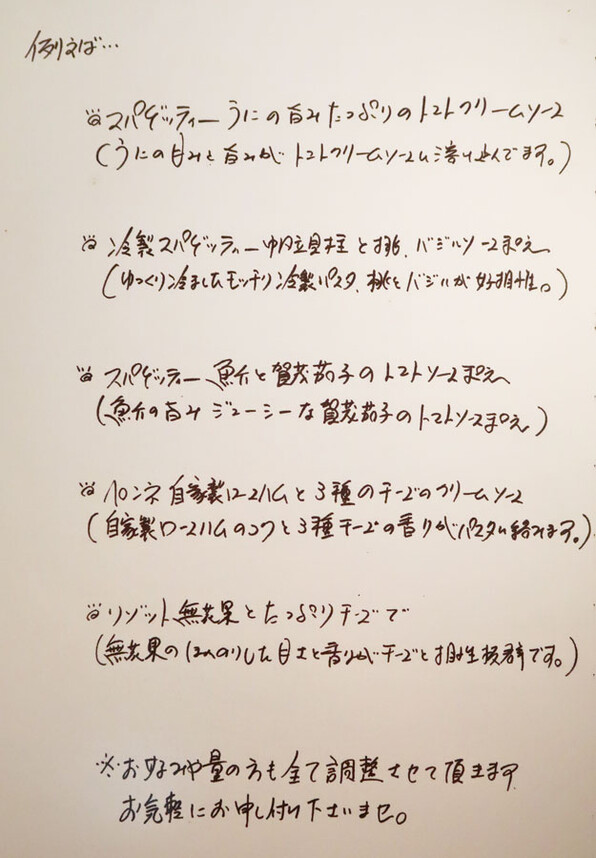 例えば…
スパゲッティー うにの旨みたっぷりのトマトクリームソース
(うにの甘みと旨みがトマトクリームソースに溶け込んでます。)
冷製スパゲッティー 帆立貝柱と桃、バジルソース和え
(ゆっくり冷ましたモッチリ冷製パスタ、桃とバジルが好相性。)
スパゲッティー 魚介と賀茂茄子のトマトソース和え
(魚介の旨み ジューシーな賀茂茄子のトマトソース和え)
ペンネ 自家製ロースハムと3種のチーズのクリームソース
(自家製ロースハムのコクと3種チーズの香りがパスタに絡みます。)
リゾット 無花果とたっぷりチーズで
(無花果のほんのりした甘さと香りがチーズと相性抜群です。)
※お好みや量の方も全て調整させて頂きます
お気軽にお申し付け下さいませ。